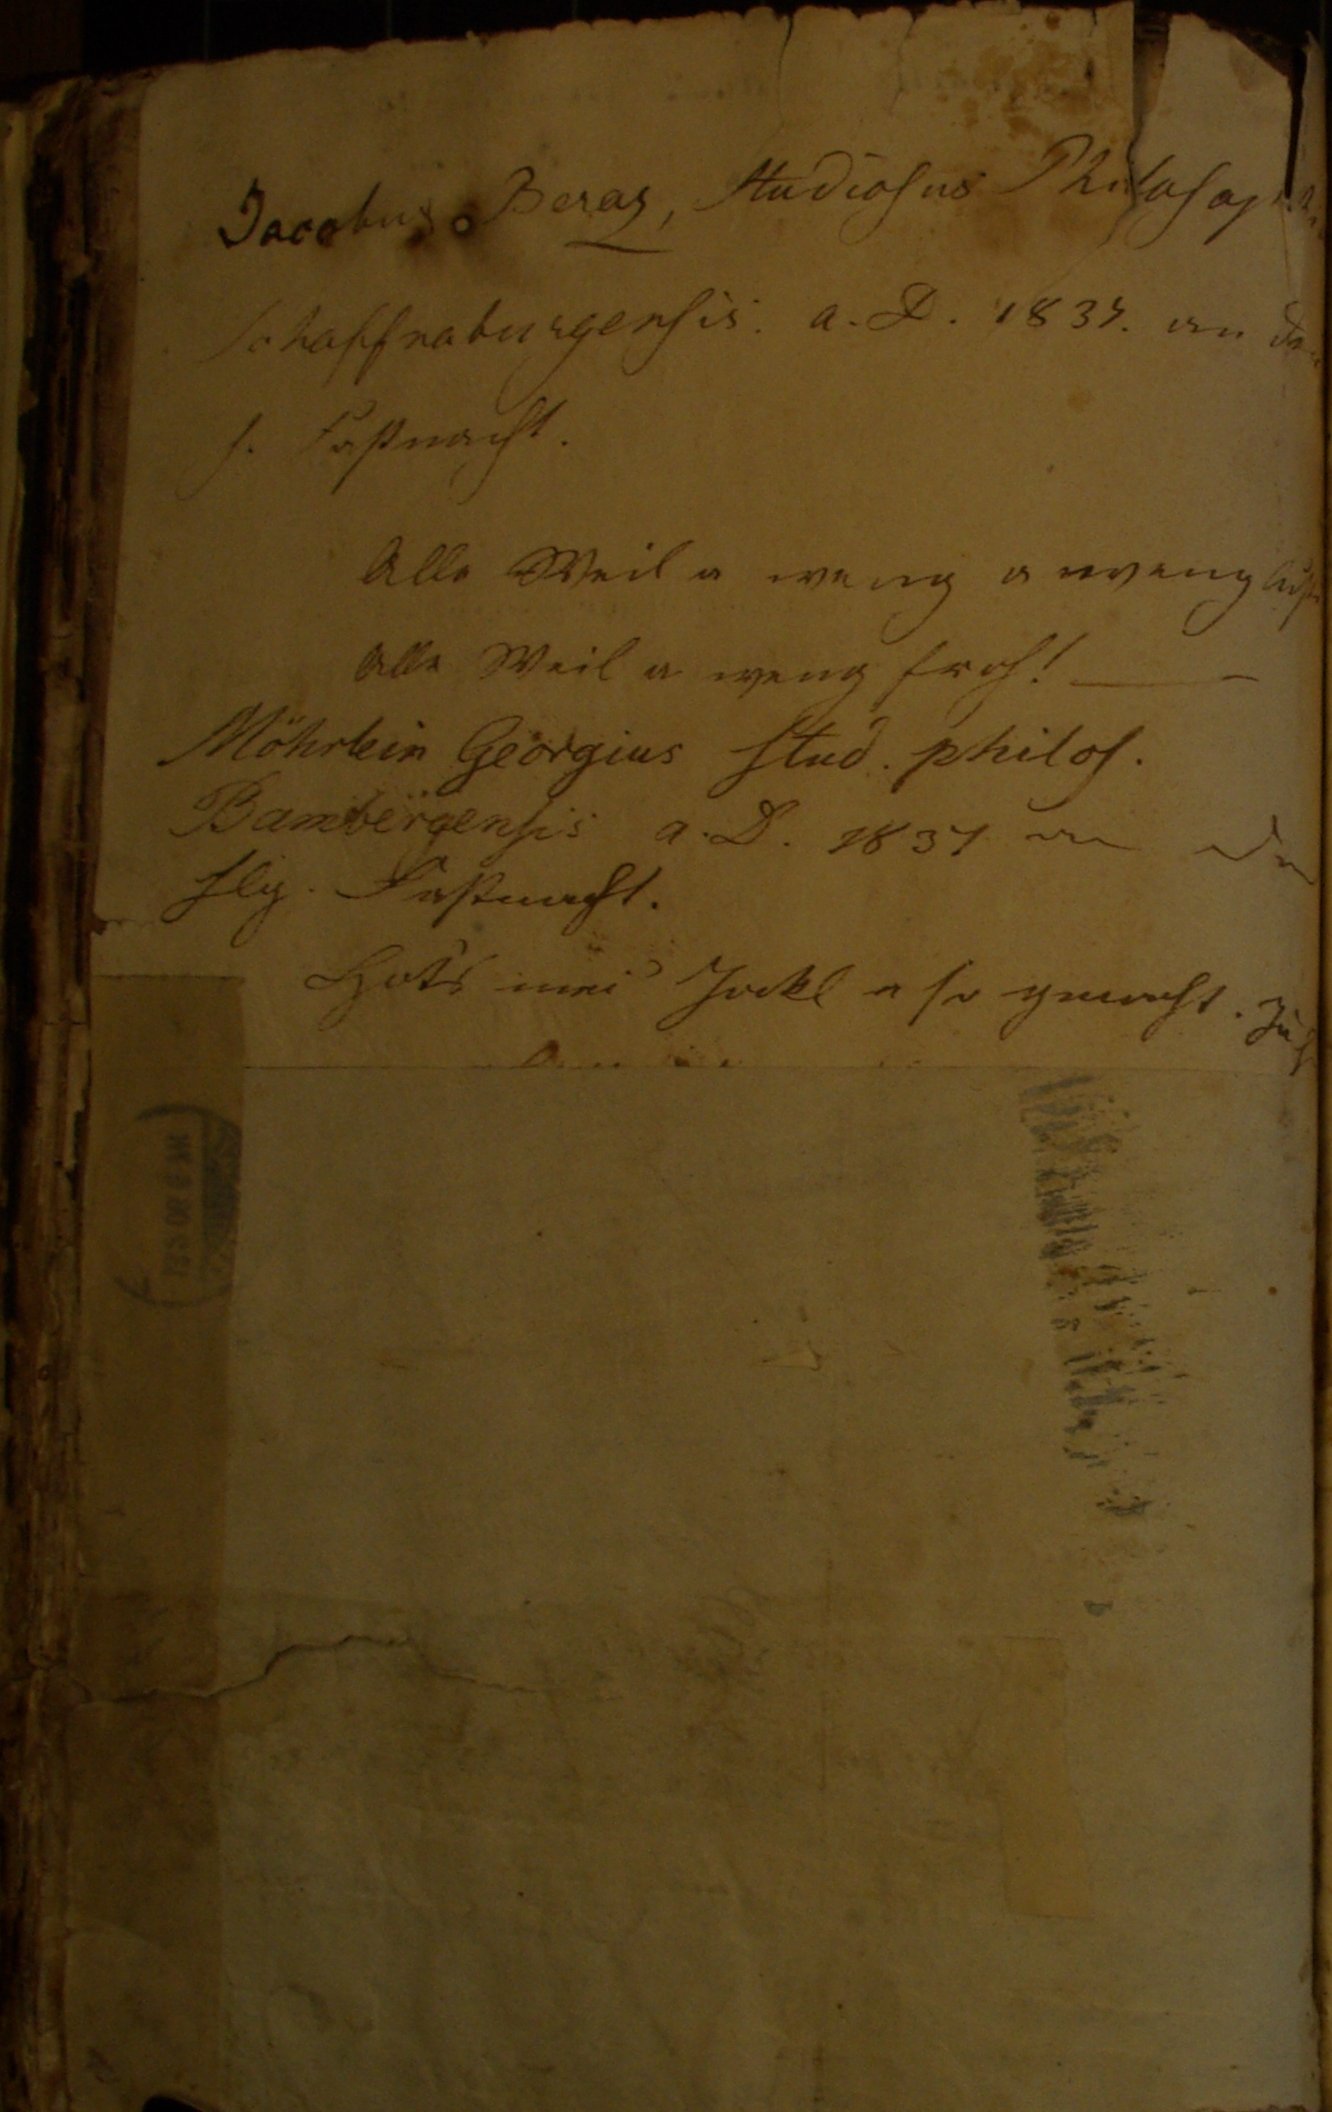 Jacobus Beraz, Studiosus Philosoph
Schaffnaburgensis. a. D. 1837. an der
h. Faßnacht.
Alle Weil a weng a weng
Alle Weil a weng froh!
Möhrlein Georgius stud. philos.
Bambergensis a. D. 1837 an der
hlg. Faßnacht.
Hot's mei Jockl a so gemacht. Juh